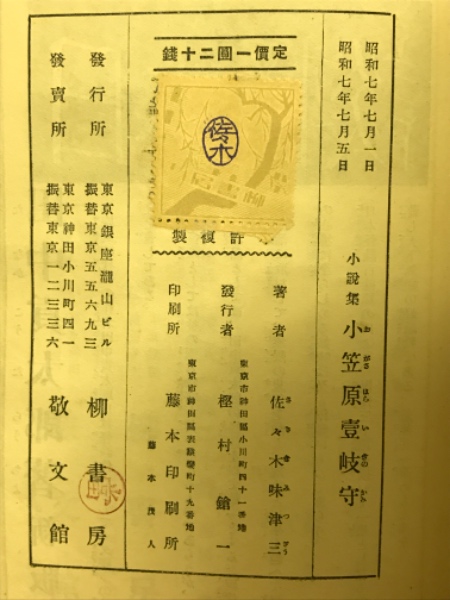 昭和七年七月一日
昭和七年七月五日
小說集 小笠原壹岐守
お がさ はら い きの かみ
定價一圓二十錢
佐木
許複製
著者 佐々木味津三
さ さ き み つ ざう
東京市神田區小川町四十一番地
發行者 樫村鎗一
東京市神田區表猿樂町十九番地
藤本茂人
印刷所 藤本印刷所
發行所
東京銀座瀧山ビル
振替東京五五六九三
柳書房
發賣所
東京神田小川町四一
振替東京一二三三六
敬文館